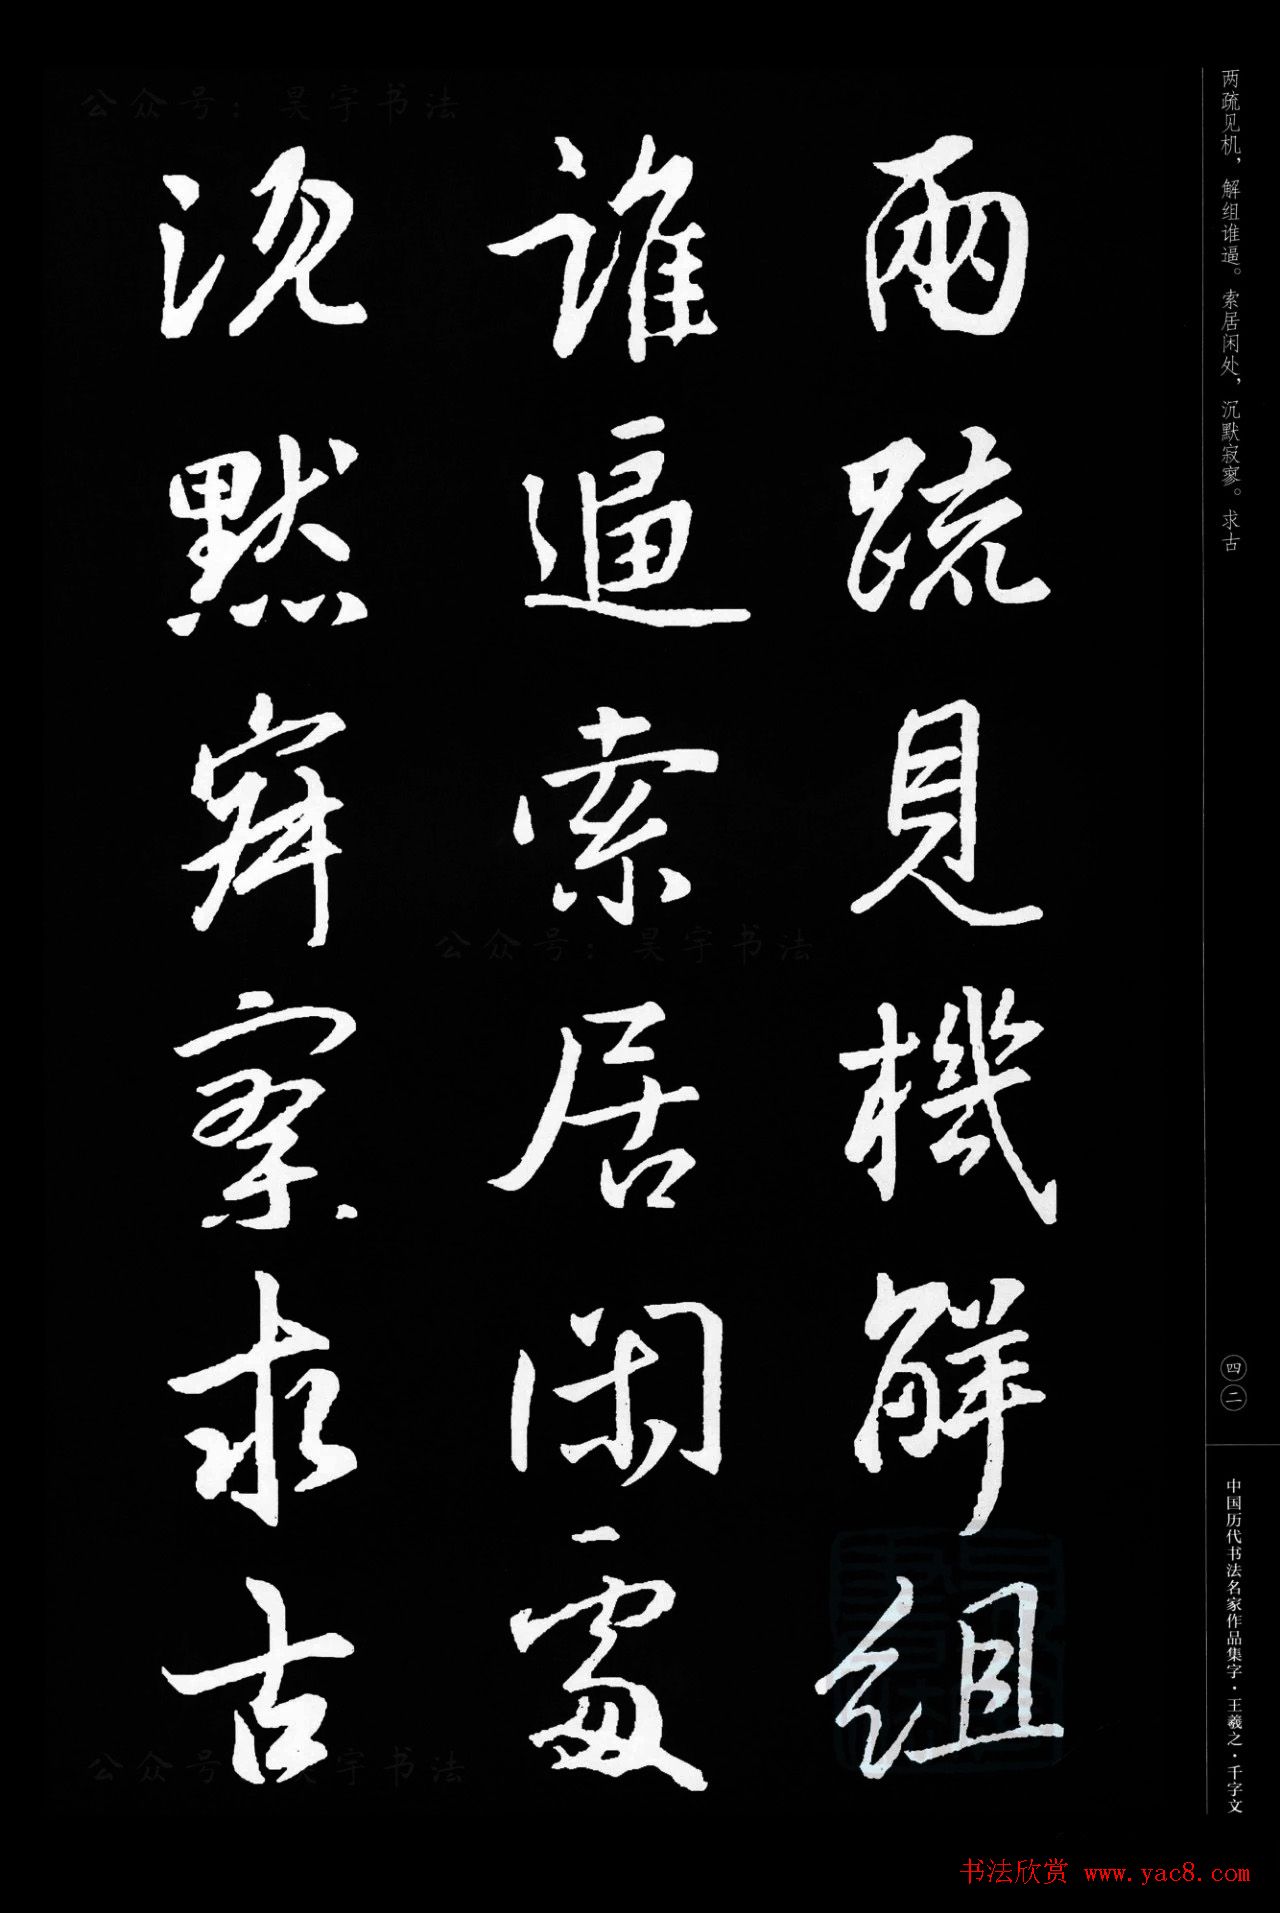 两疏见机，解组谁逼。索居闲处，沉默寂寥。求古
兩疏見機解組
誰逼索居閑處
沉默寂寥求古
四二
中国历代书法名家作品集字·王羲之·千字文
公众号：昊宇书法
公众号：昊宇书法
公众号：昊宇书法
书法欣赏 www.yac8.com